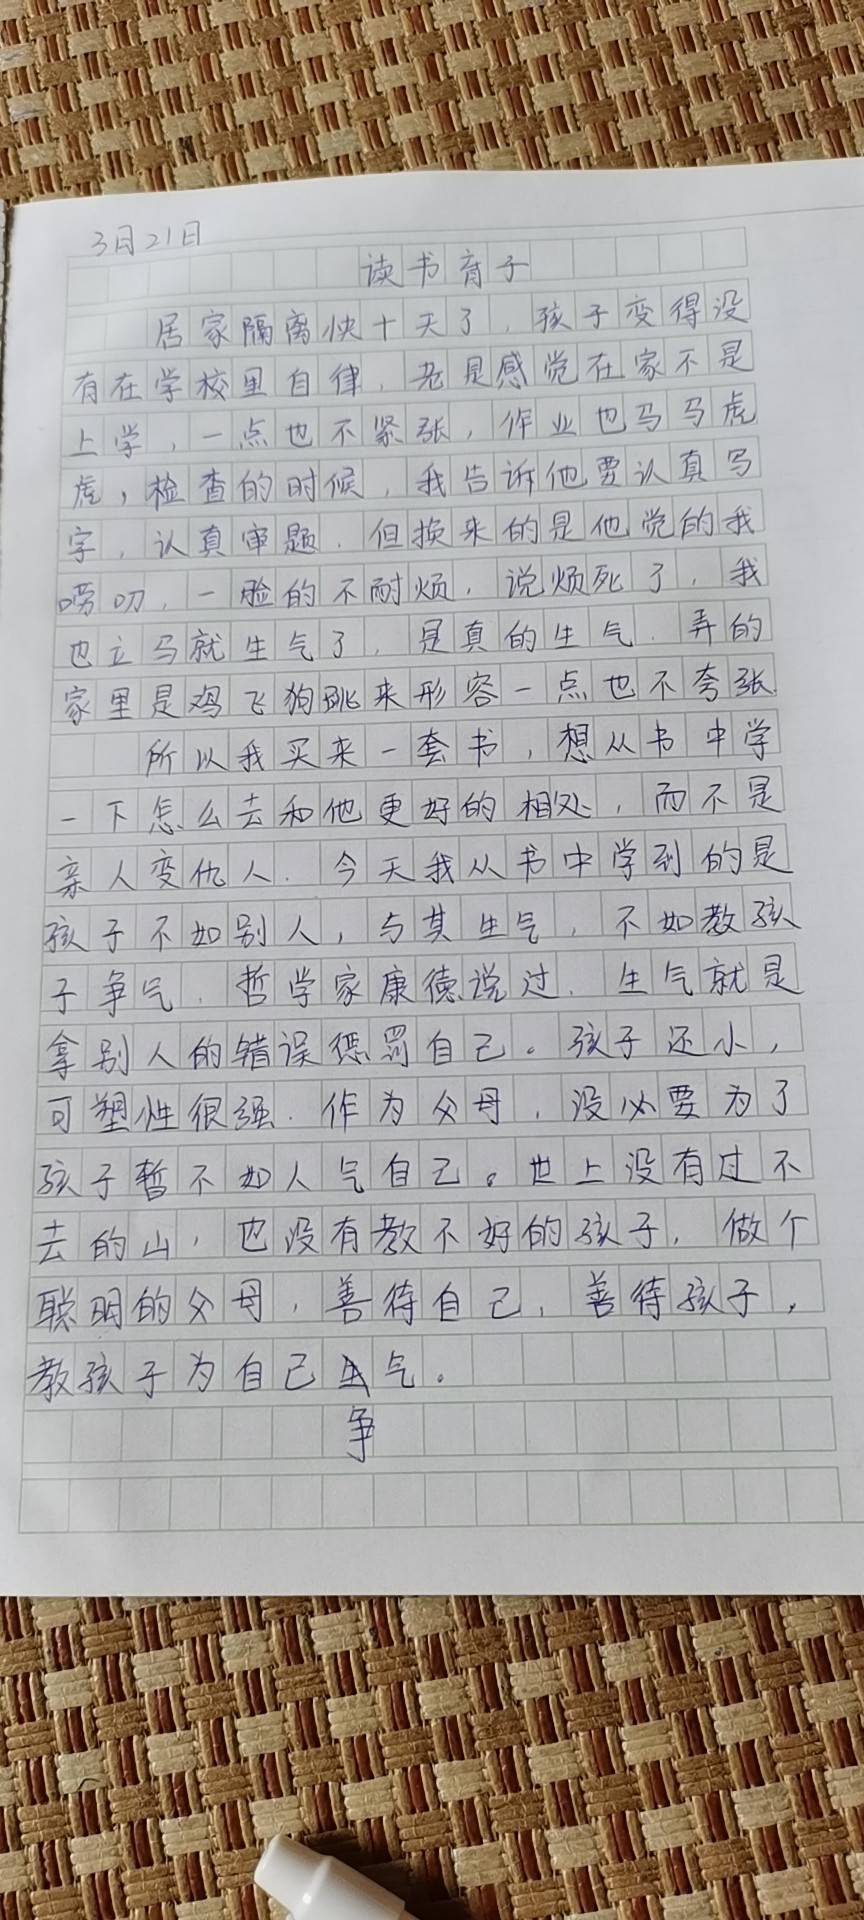 3月21日
读书育子
居家隔离快十天了，孩子变得没
有在学校里自律，老是感觉在家不是
上学，一点也不紧张，作业也马马虎
虎，检查的时候，我告诉他要认真写
字，认真审题．但换来的是他觉的我
唠叨，一脸的不耐烦，说烦死了，我
也立马就生气了，是真的生气．弄的
家里是鸡飞狗跳来形容一点也不夸张．
所以我买来一套书，想从书中学
一下怎么去和他更好的相处，而不是
亲人变仇人．今天我从书中学到的是
孩子不如别人，与其生气，不如教孩
子争气．哲学家康德说过．生气就是
拿别人的错误惩罚自己。孩子还小，
可塑性很强．作为父母，没必要为了
孩子暂不如人气自己。世上没有过不
去的山，也没有教不好的孩子，做个
聪明的父母，善待自己，善待孩子，
教孩子为自己生气．
争